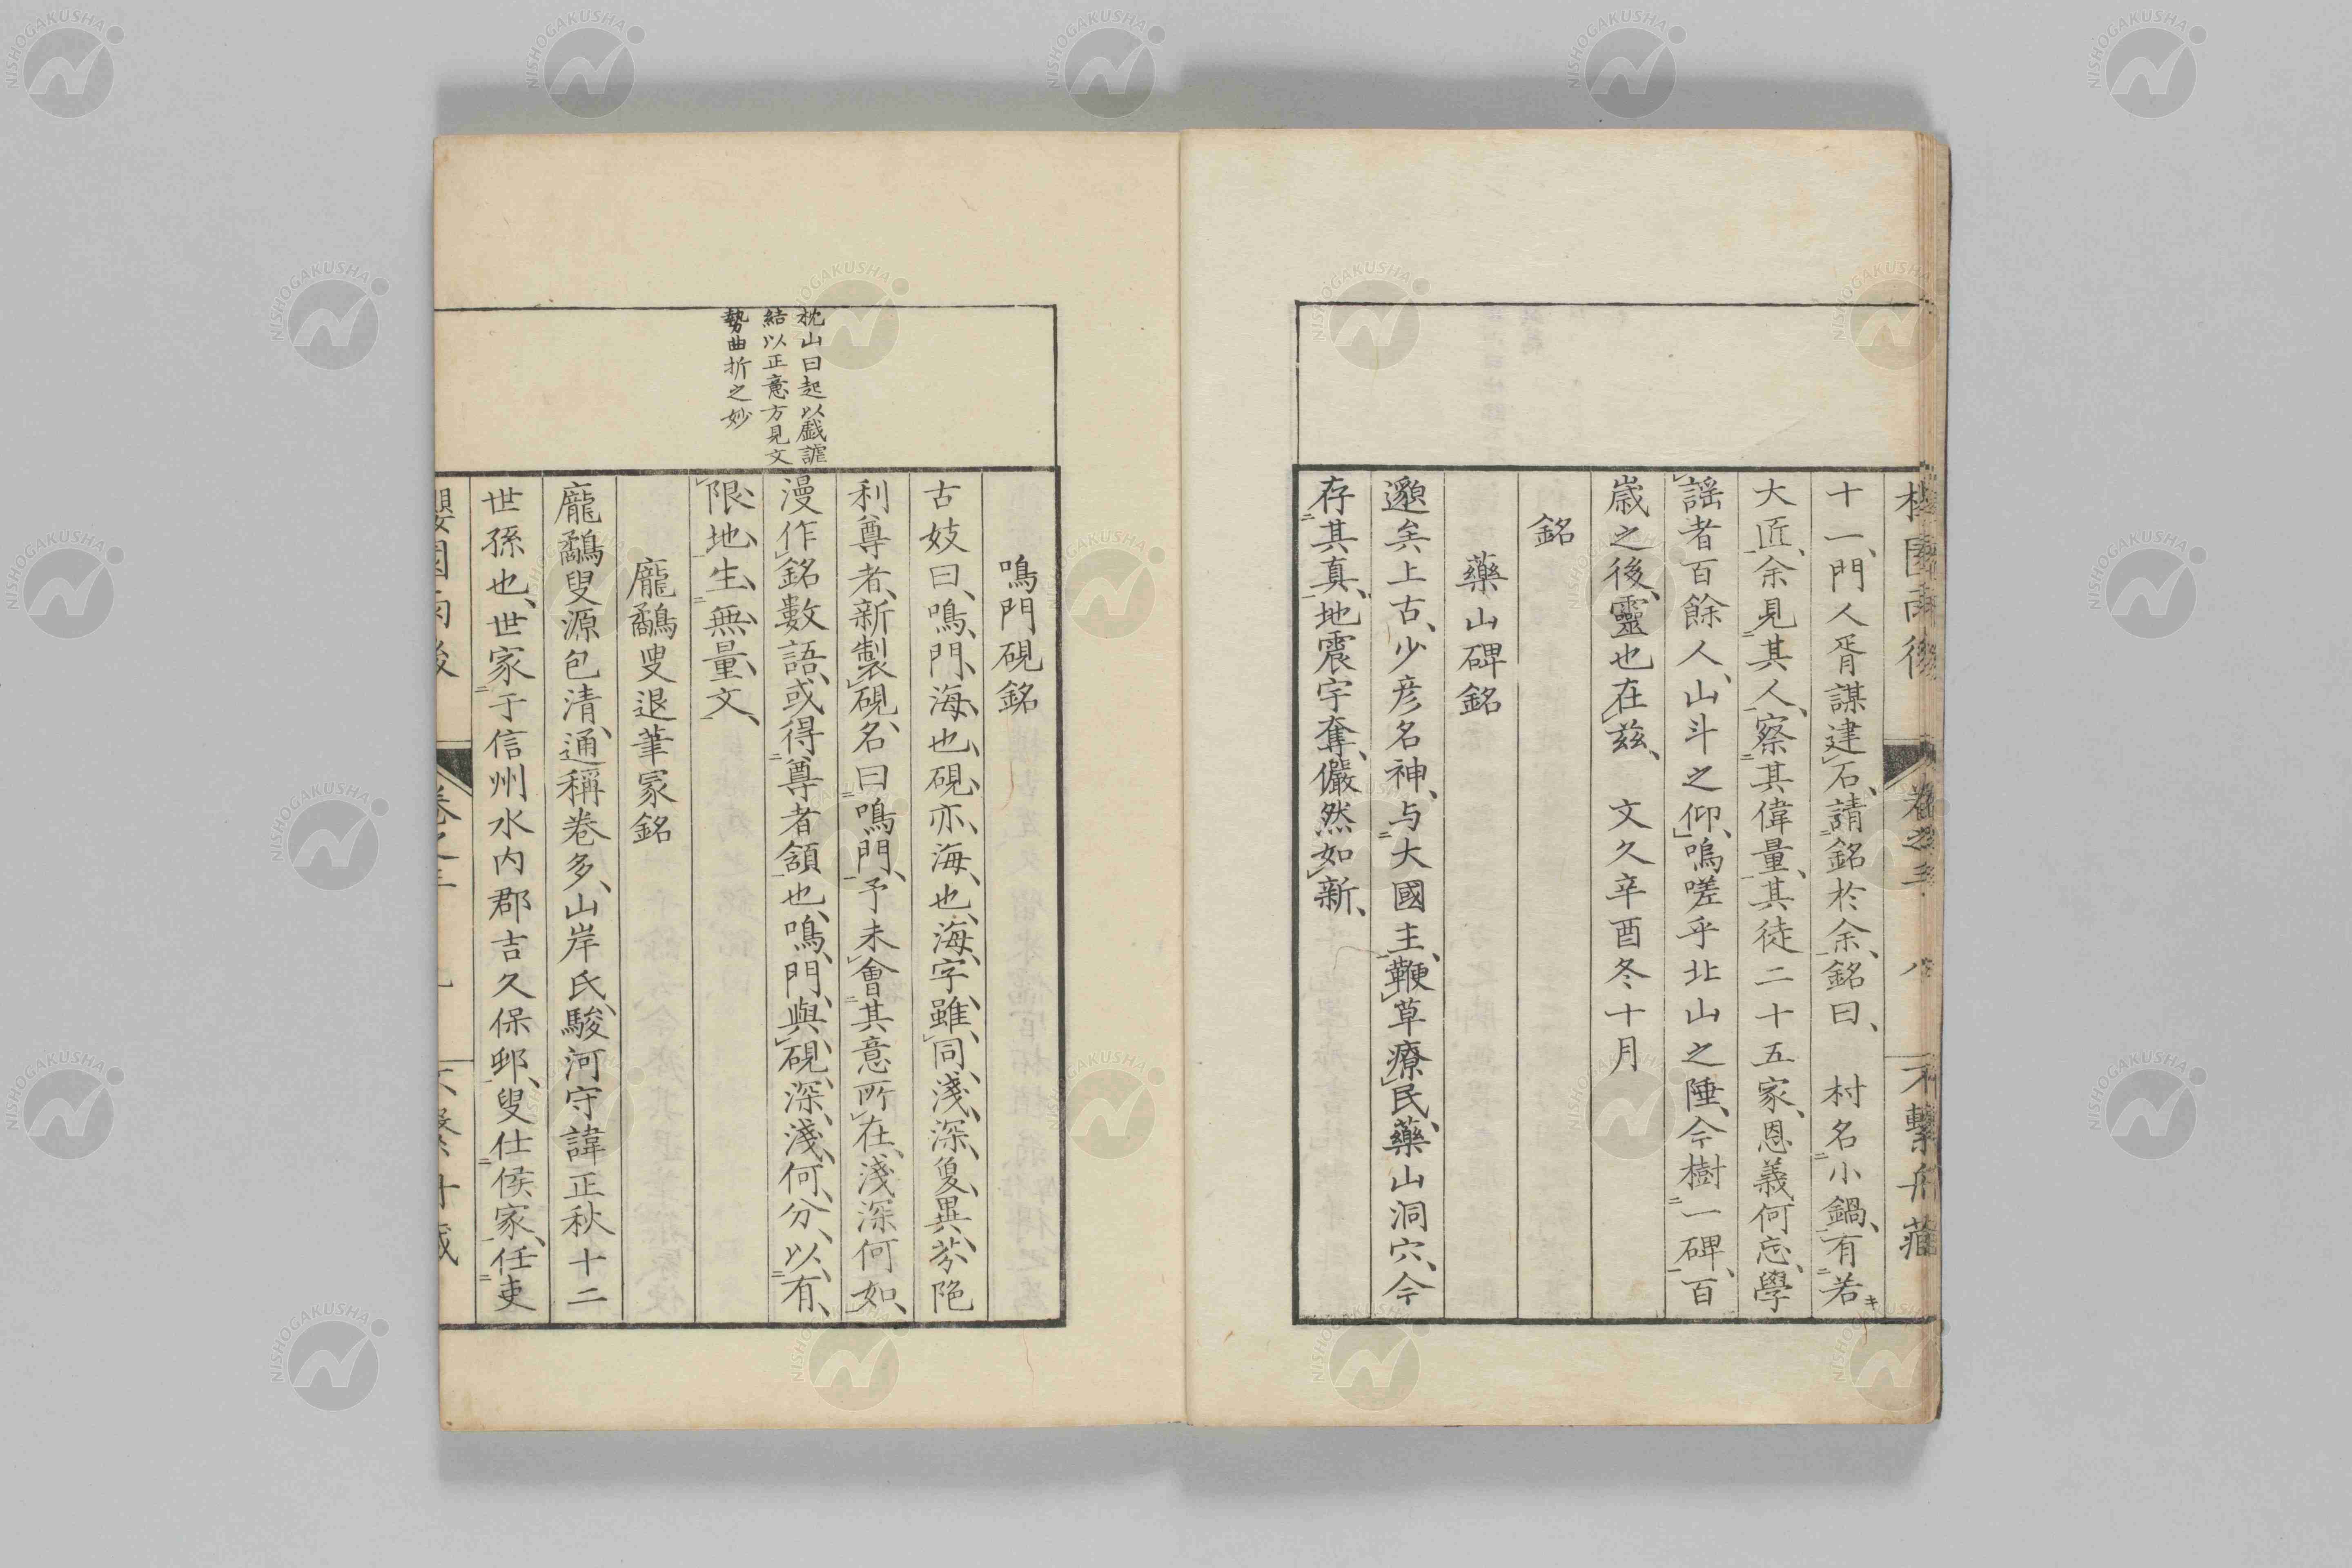 十一、門人胥謀建石、請銘於余、銘曰、　村名小鍋、有若キ
大匠、余見其人、察其偉量、其徒二十五家、恩義何忘、學
謡者百餘人、山斗之仰、嗚嗟乎北山之陲、今樹一碑、百
歳之後、靈也在茲、　文久辛酉冬十月
銘
藥山碑銘
邈矣上古、少彦名神、与大國主、鞭草療民、藥山洞穴、今
存其真、地震宇奪、儼然如新、
枕山曰起以戯謔
結以正意方見文
勢曲折之妙
鳴門硯銘
古妓曰、鳴、門、海、也、硯、亦、海、也、海、字、雖、同、淺、深、夐、異、芬陀
利尊者、新製硯、名曰鳴門、予未會其意所在、淺深何如、
漫作銘數語、或得尊者頷也、鳴、門、與、硯、深、淺、何、分、以、有、
限、地、生、無、量、文、
龐鷸叟退筆冢銘
龐鷸叟源包清、通稱巻多、山岸氏、駿河守諱正秋十二
世孫也、世家于信州水内郡吉久保邨、叟仕侯家、任吏
卷之三
NISHOGAKUSHA